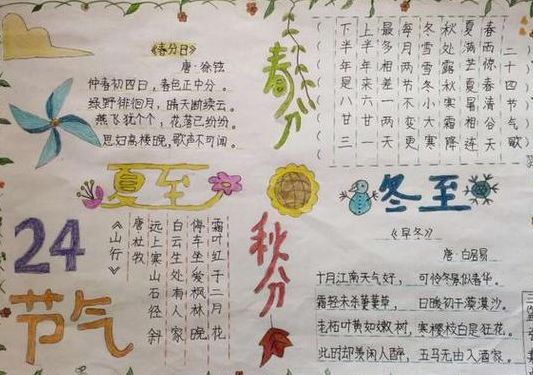 《春分日》
唐·徐铉
仲春初四日，春色正中分。
绿野徘徊月，晴天断续云。
燕飞犹个个，花落已纷纷。
思妇高楼晚，歌声不可闻。
春分
二十四节气歌
春雨惊春清谷天
夏满芒夏暑相连
秋处露秋寒霜降
冬雪雪冬小大寒
每月两节不变更
最多相差一两天
上半年来六廿一
下半年是八廿三
夏至
24
节气
《山行》
唐杜牧
远上寒山石径斜
白云生处有人家
停车坐爱枫林晚
霜叶红于二月花
秋分
冬至
《早冬》
唐·白居易
十月江南天气好，可怜冬景似春华。
霜轻未杀萋萋草，日暖初干漠漠沙。
老柘叶黄如嫩树，寒樱枝白是狂花。
此时却羡闲人醉，五马无由入酒家。